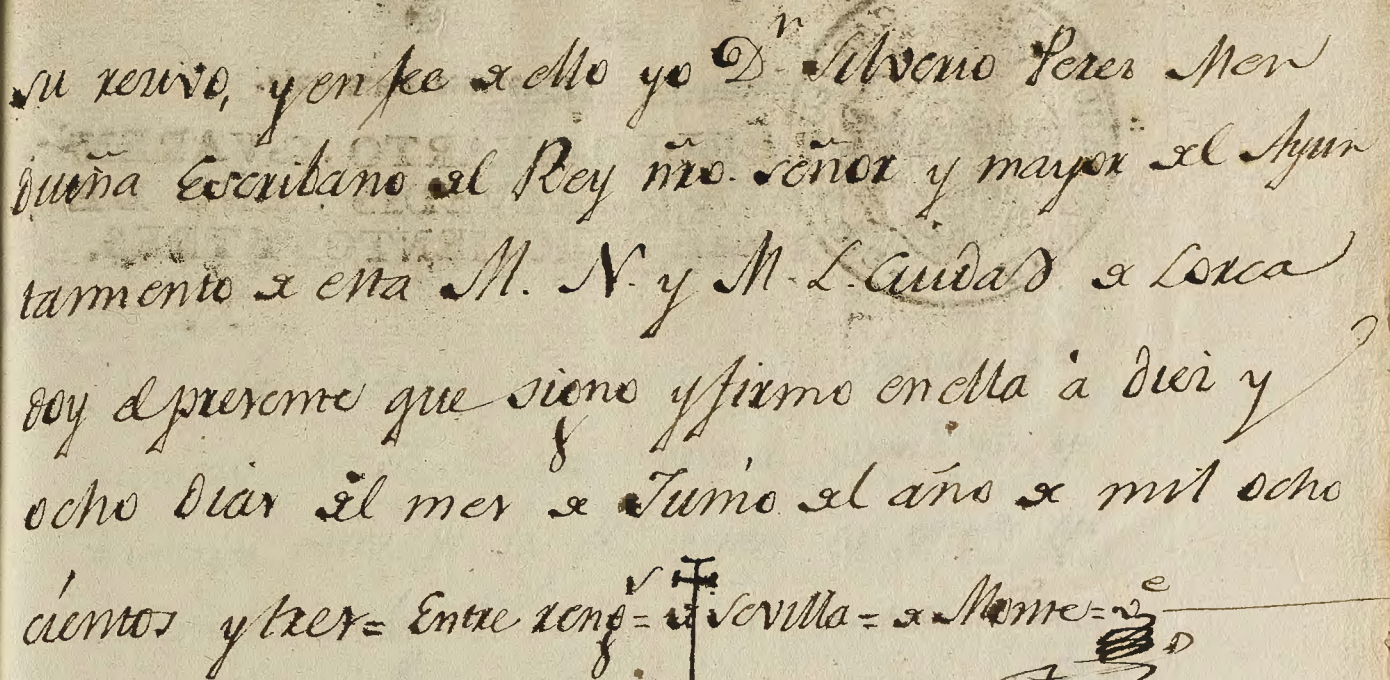 su recivo, y en fee de ello yo Dn Silverio Perez Men
dueña Escribano del Rey ñro. señor y mayor del Ayun
tamiento de esta M. N. y M. L. Ciudad de Lorca
doy el presente que signo y firmo en ella à diez y
ocho dias del mes de Junio del año de mil ocho
cientos y tres = Entre rengs = de Sevilla = de Monte = ve